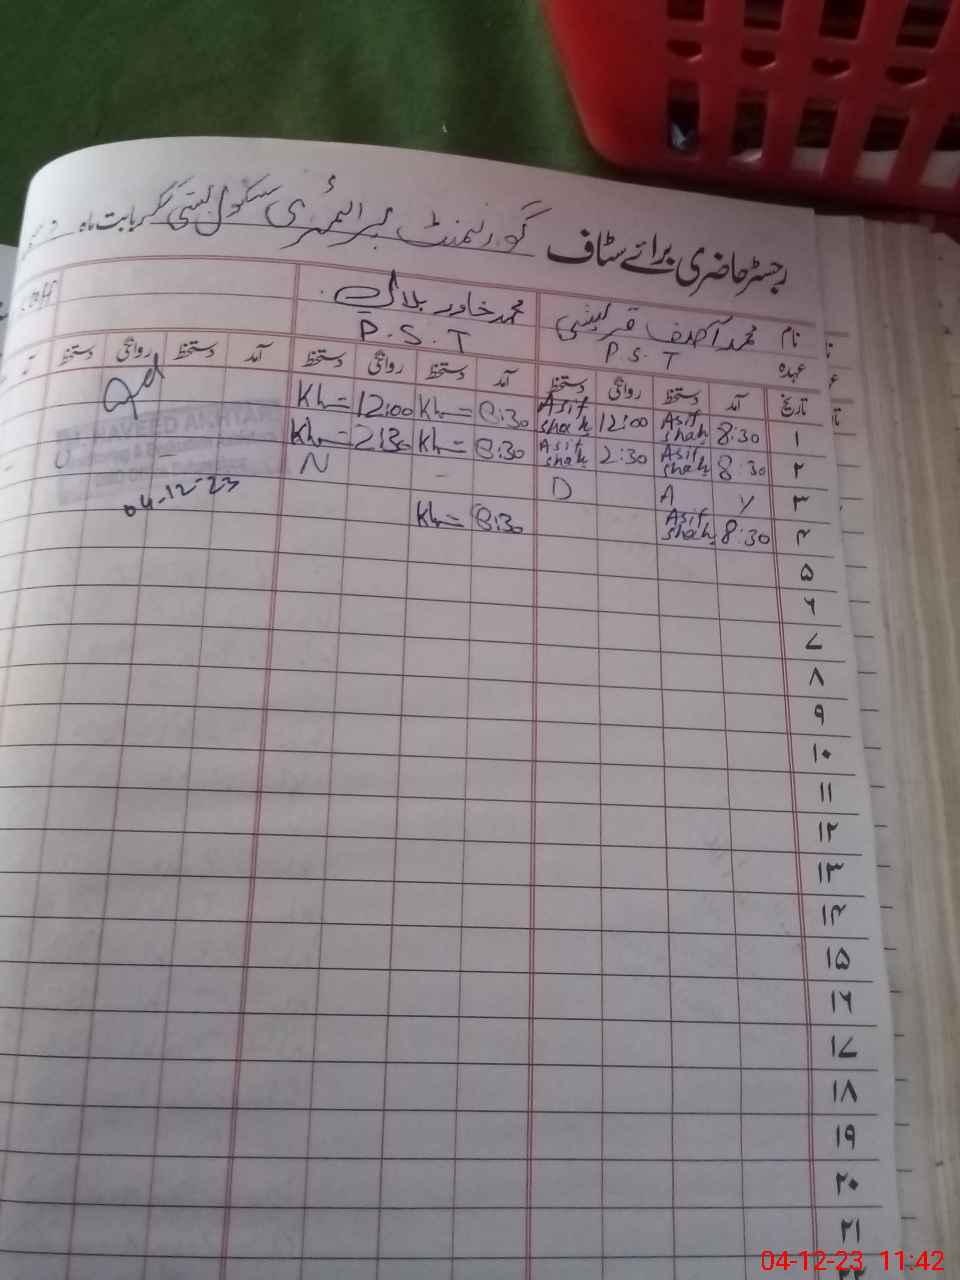 رجسٹر حاضری برائے سٹاف گورنمنٹ پرائمری سکول بستی بابت ماہ
نام محمد آصف قریشی محمد خاور بلال
عہدہ P.S.T P.S.T
تاریخ آمد دستخط روانگی دستخط آمد دستخط روانگی دستخط آمد دستخط روانگی دستخط
۱ 8:30 Asif shah 12:00 Asif shah 8:30 Kh= 12:00 Kh=
۲ 8:30 Asif shah 2:30 Asif shah 8:30 Kh= 2:30 Kh=
NAVEED AKHTAR
۳ y A D N
04-12-23
۴ 8:30 Asif shah 8:30 Kh=
۵
۶
۷
۸
۹
۱۰
۱۱
۱۲
۱۳
۱۴
۱۵
۱۶
۱۷
۱۸
۱۹
۲۰
۲۱
04-12-23 11:42